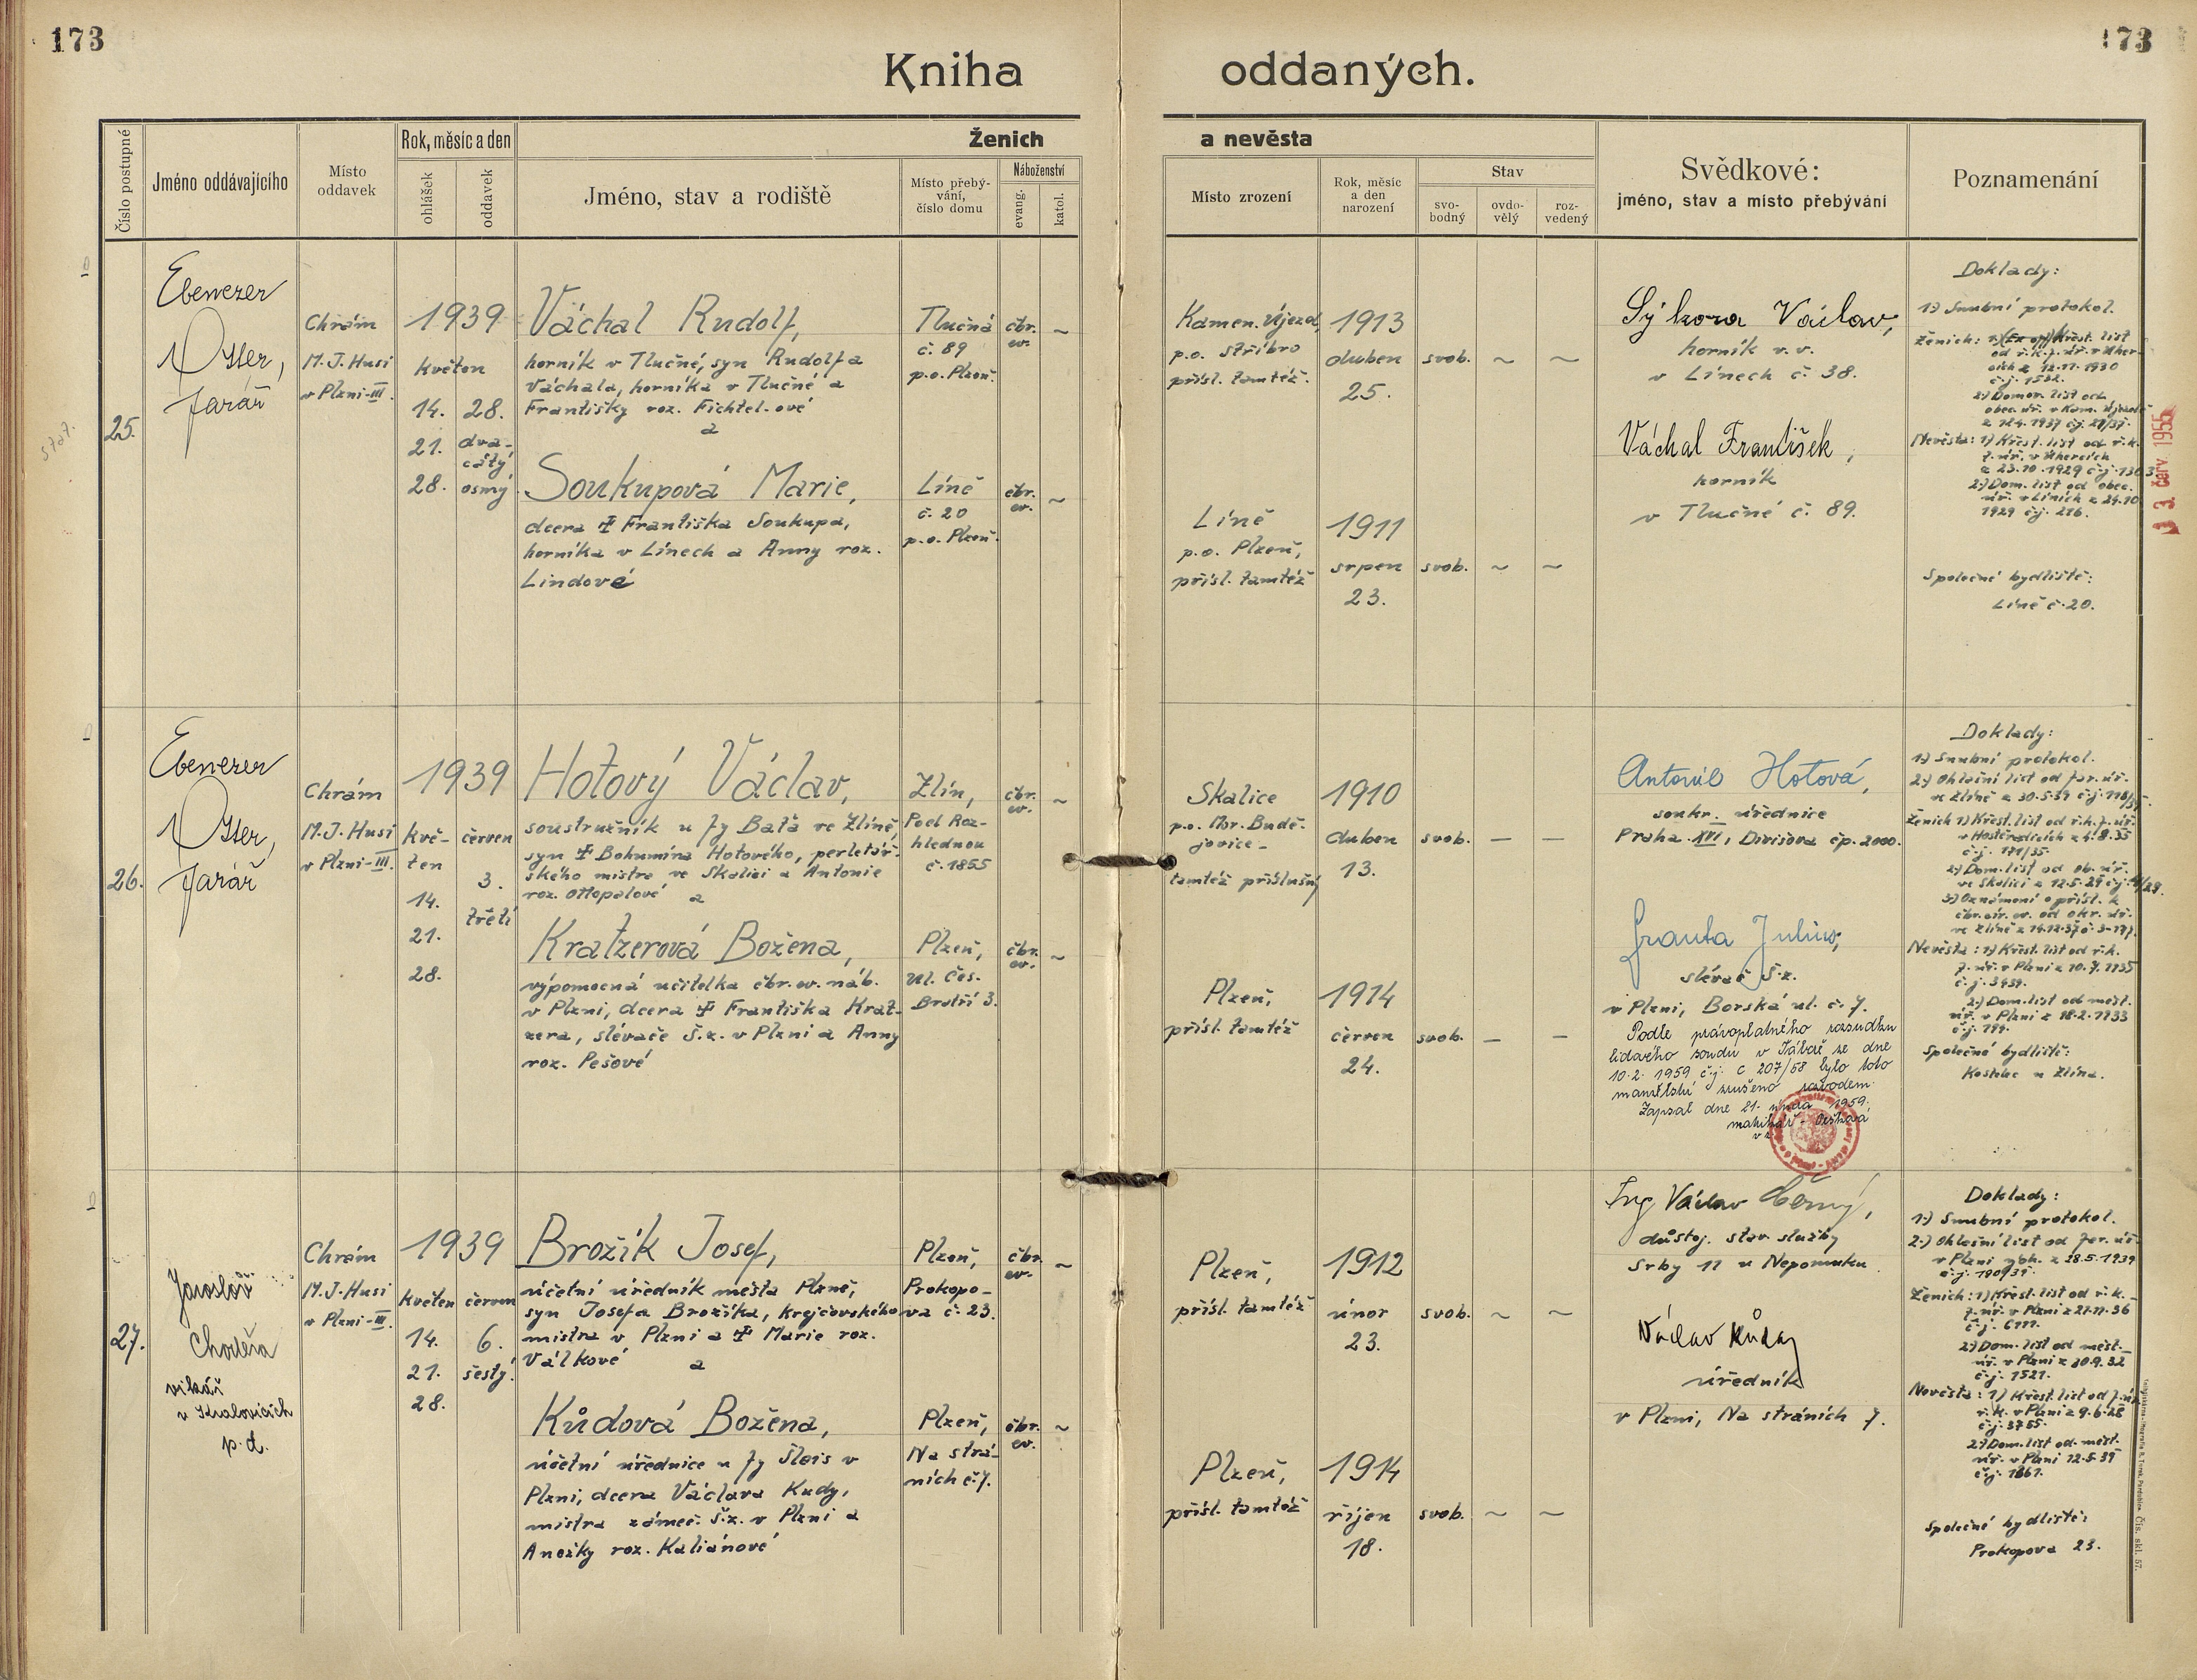 173
173
Kniha oddaných.
Číslo postupné
Jméno oddávajícího
Místo oddavek
Rok, měsíc a den
ohlášek
oddavek
Ženich a nevěsta
Jméno, stav a rodiště
Místo přebývání, číslo domu
Náboženství
evang.
katol.
Místo zrození
Rok, měsíc a den narození
Stav
svobodný
ovdovělý
rozvedený
Svědkové:
jméno, stav a místo přebývání
Poznamenání
25.
Ebenezer
Otter,
farář
Chrám
M.J. Husi
v Plzni-III.
1939
květen
14. 28.
21. dva-
cátý
28. osmý
Váchal Rudolf,
horník v Tlučné, syn Rudolfa
Váchala, horníka v Tlučné a
Františky roz. Fichtel-ové
a
Soukupová Marie,
dcera ‡ Františka Soukupa,
horníka v Línech a Anny roz.
Lindové
Tlučná
č. 89
p.o. Plzeň.
Líně
č. 20
p.o. Plzeň.
čbr.
ev.
~
čbr.
ev.
~
Kamen. Újezd,
p.o. Stříbro
přísl. tamtéž.
1913
duben
25.
svob. ~ ~
Líně
p.o. Plzeň,
přísl. tamtéž
1911
srpen
23.
svob. ~ ~
Sýkora Václav,
horník v.v.
v Línech č. 38.
Váchal František,
horník
v Tlučné č. 89.
Doklady:
1.) Snubní protokol.
Ženich: Křest. list
od ř.k.f.úř. v Úher-
cích z 12.11.1930
č.j. 1532.
2.) Domov. list od
obec. úř. v Kam. Újezdě
z 12.4.1937 čj. 21/37.
Nevěsta: 1) Křest. list od ř.k.
f. úř. v Úhercích
z 23.10.1929 č.j. 1303
2.) Dom. list od obec.
úř. v Líních z 24.10.
1929 čj. 216.
Společné bydliště:
Líně č. 20.
3. červ. 1955
26.
Ebenezer
Otter,
farář
Chrám
M.J. Husi
v Plzni-III.
1939
kvě- červen
ten
3.
14.
třetí
21.
28.
Hotový Václav,
soustružník u fy Baťa ve Zlíně,
syn ‡ Bohumíra Hotového, perletář-
ského mistra ve Skalici a Antonie
roz. Ottopalové a
Kratzerová Božena,
výpomocná učitelka čbr.ev. náb.
v Plzni, dcera ‡ Františka Krat-
zera, slévače Š.z. v Plzni a Anny
roz. Pešové
Zlín,
Pod Roz-
hlednou
č. 1855
Plzeň,
Ul. Čes.
Bratří 3.
čbr.
ev.
~
čbr.
ev.
~
Skalice
p.o. Mor. Budě-
jovice-
tamtéž příslušný
1910
duben
13.
svob. — —
Plzeň,
přísl. tamtéž
1914
červen
24.
svob. — —
Antonie Hotová,
soukr. úřednice
Praha XIII, Divišova čp. 2000.
Franta Julius,
slévač Š.z.
v Plzni, Borská ul. č. 7.
Podle právoplatného rozsudku
lidového soudu v Táboře ze dne
10.2.1959 č.j. C 207/58 bylo toto
manželství zrušeno rozvodem.
Zapsal dne 21. února 1959.
Doklady:
1.) Snubní protokol.
2.) Ohlašní list od far. úř.
ve Zlíně z 30.5.39 č.j. 118/39.
Ženich 1) Křest. list od ř.k.f. úř.
v Hostěradicích z 4.8.35
č.j. 171/35.
2.) Dom. list od ob. úř.
ve Skalici z 12.5.29 čj.
3.) Oznámení o přísl. k
čbr. cír. ev. od okr. úř.
Nevěsta: 1) Křest. list od ř.k.
f. úř. v Plzni z 10.7.1935
č.j. 3459.
2.) Dom. list od měst.
úř. v Plzni z 18.2.1933
č.j. 199.
Společné bydliště:
Kostelec u Zlína.
27.
Jaroslav
Choděra
vikář
v Kralovicích
p.t.
Chrám
M.J. Husi
v Plzni-III.
1939
květen červen
14. 6.
21. šestý.
28.
Brožík Josef,
účetní úředník města Plzně,
syn Josefa Brožíka, krejčovského
mistra v Plzni a ‡ Marie roz.
Válkové a
Kůdová Božena,
účetní úřednice u fy Šlais v
Plzni, dcera Václava Kudy,
mistra zámeč. Š.z. v Plzni a
Anežky roz. Kaliánové
Plzeň,
Prokopo-
va č. 23.
Plzeň,
Na strá-
ních č. 7.
čbr.
ev.
~
čbr.
ev.
~
Plzeň,
přísl. tamtéž
1912
únor
23.
svob. ~ ~
Plzeň,
přísl. tamtéž
1914
říjen
18.
svob. ~ ~
Ing Václav Černý,
důstoj. stav. služby
Srby 11 u Nepomuku.
Václav Kůda
úředník
v Plzni, Na stráních 7.
Doklady:
1.) Snubní protokol.
2.) Ohlašní list od far. úř.
v Plzni z 28.5.1939
Ženich: 1) Křest. list od ř.k.
f. úř. v Plzni z 21.11.36
č.j. 6111.
2.) Dom. list od měst.
úř. v Plzni z 20.9.32
č.j. 1521.
Nevěsta: 1) Křest. list od f.úř.
ř.k. v Plzni z 9.6.28
č.j. 3755.
2.) Dom. list od měst.
úř. v Plzni 12.5.39
č.j. 1861.
Společné bydliště:
Prokopova 23.